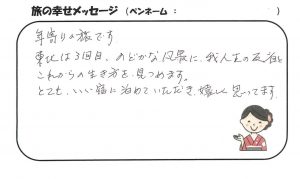 旅の幸せメッセージ (ペンネーム： )
年寄りの旅です
東北は3回目、のどかな風景に、我人生の反省と
これからの生き方を見つめます。
とても、いい宿に泊めていただき嬉しく思ってます